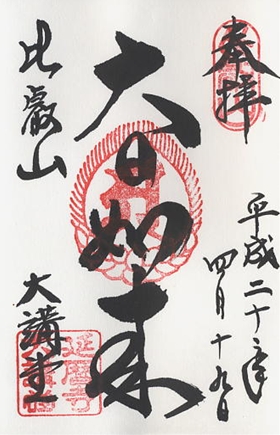 奉拝
平成二十年
四月十九日
大日如来
比叡山
大講堂
延暦寺